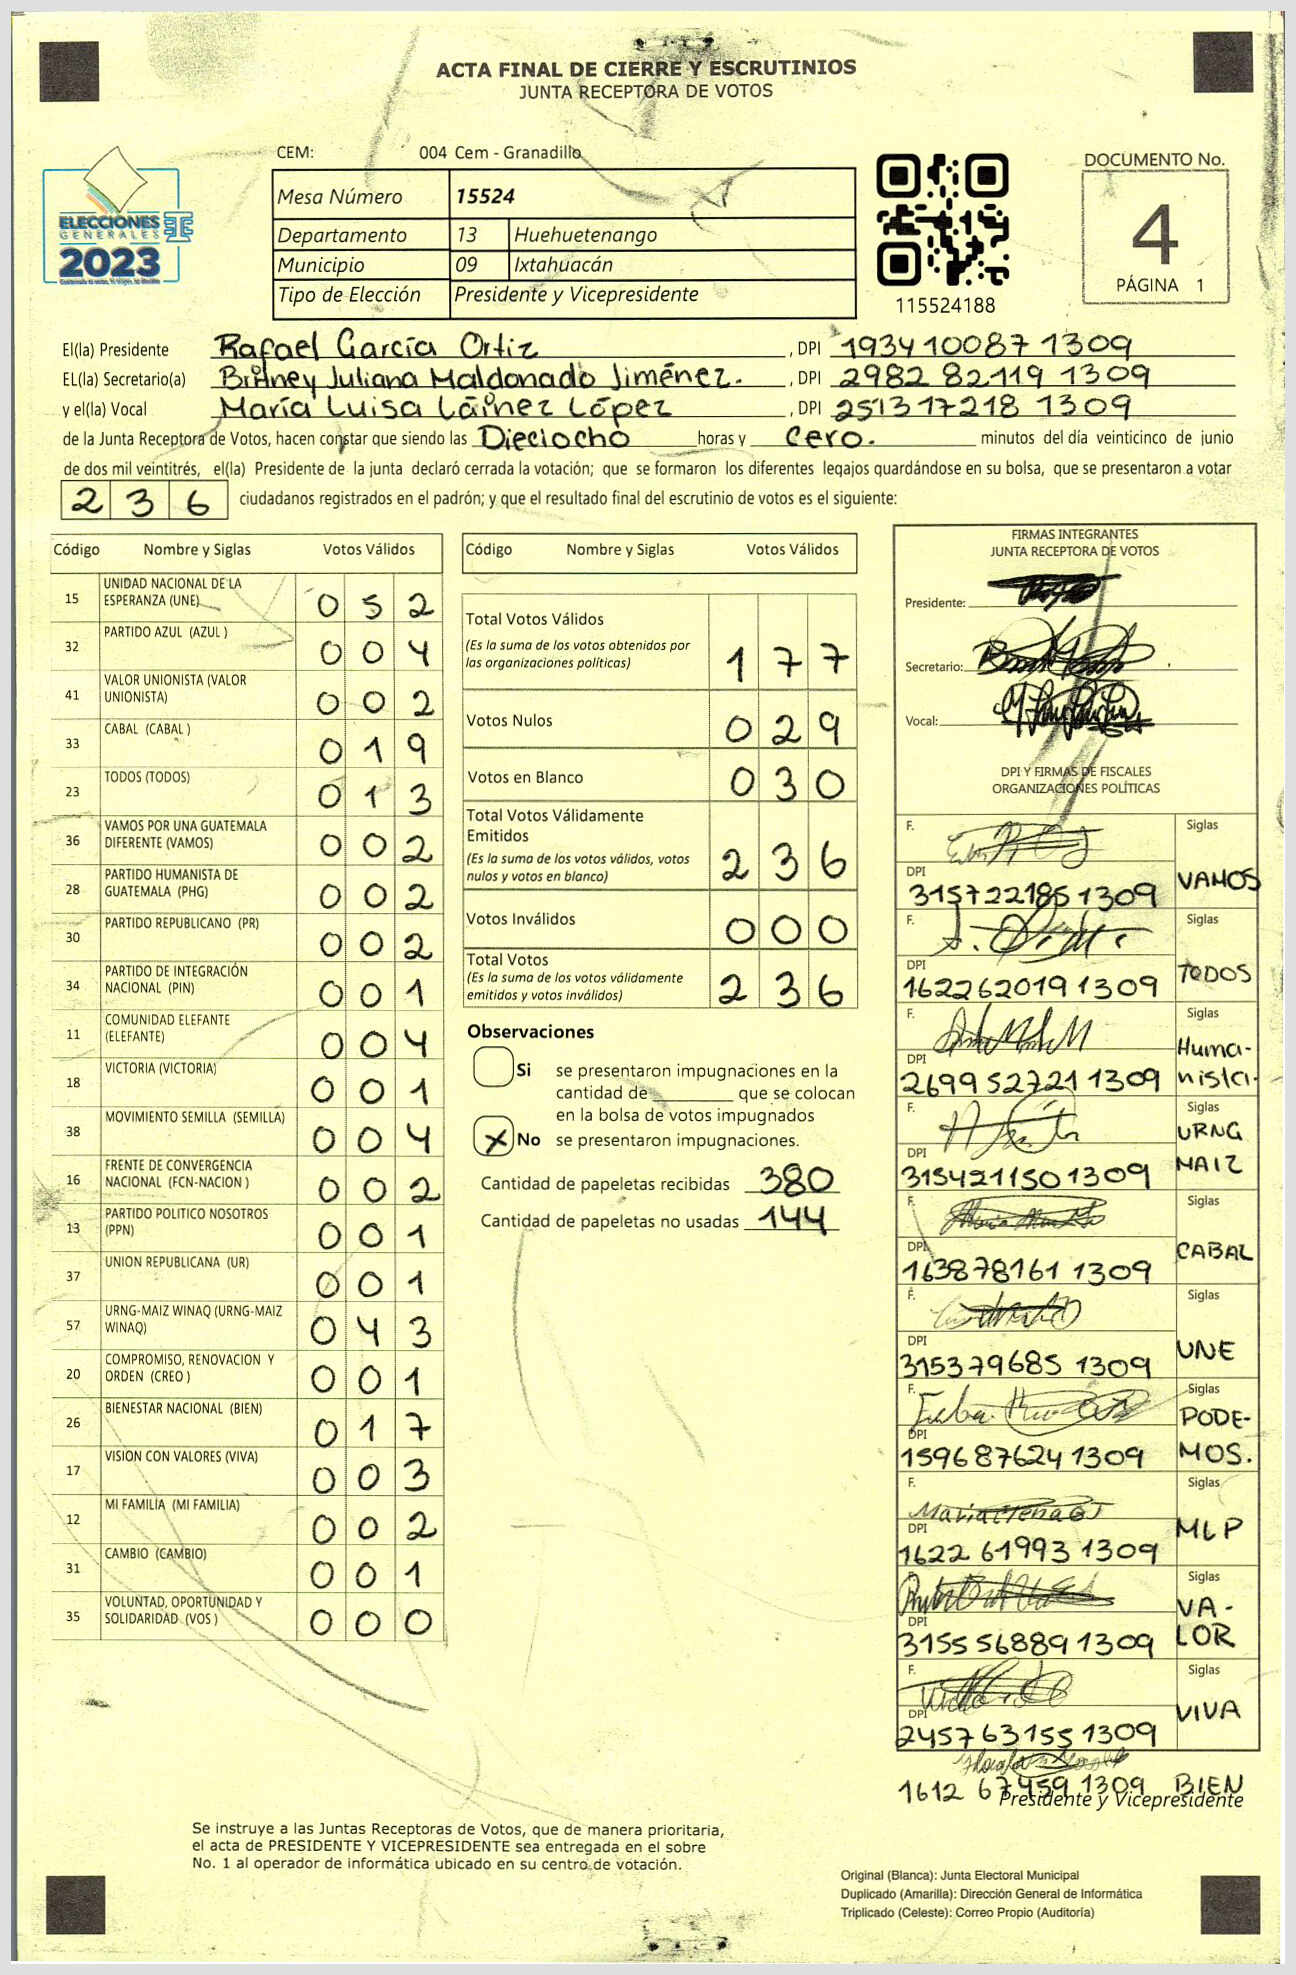 ACTA FINAL DE CIERRE Y ESCRUTINIOS
JUNTA RECEPTORA DE VOTOS
CEM: 004 Cem - Granadillo
ELECCIONES
GENERALES
2023
Mesa Número 15524
Departamento 13 Huehuetenango
Municipio 09 Ixtahuacán
Tipo de Elección Presidente y Vicepresidente
115524188
DOCUMENTO No.
4
PÁGINA 1
El(la) Presidente Rafael García Ortiz , DPI 193410087 1309
EL(la) Secretario(a) Britney Juliana Maldonado Jiménez. , DPI 2982 82119 1309
y el(la) Vocal María Luisa Láinez López , DPI 251317218 1309
de la Junta Receptora de Votos, hacen constar que siendo las Dieciocho horas y cero. minutos del día veinticinco de junio
de dos mil veintitrés, el(la) Presidente de la junta declaró cerrada la votación; que se formaron los diferentes legajos quardándose en su bolsa, que se presentaron a votar
236 ciudadanos registrados en el padrón; y que el resultado final del escrutinio de votos es el siguiente:
Código Nombre y Siglas Votos Válidos
15 UNIDAD NACIONAL DE LA ESPERANZA (UNE) 052
32 PARTIDO AZUL (AZUL ) 004
41 VALOR UNIONISTA (VALOR UNIONISTA) 002
33 CABAL (CABAL ) 019
23 TODOS (TODOS) 013
36 VAMOS POR UNA GUATEMALA DIFERENTE (VAMOS) 002
28 PARTIDO HUMANISTA DE GUATEMALA (PHG) 002
30 PARTIDO REPUBLICANO (PR) 002
34 PARTIDO DE INTEGRACIÓN NACIONAL (PIN) 001
11 COMUNIDAD ELEFANTE (ELEFANTE) 004
18 VICTORIA (VICTORIA) 001
38 MOVIMIENTO SEMILLA (SEMILLA) 004
16 FRENTE DE CONVERGENCIA NACIONAL (FCN-NACION ) 002
13 PARTIDO POLITICO NOSOTROS (PPN) 001
37 UNION REPUBLICANA (UR) 001
57 URNG-MAIZ WINAQ (URNG-MAIZ WINAQ) 043
20 COMPROMISO, RENOVACION Y ORDEN (CREO ) 001
26 BIENESTAR NACIONAL (BIEN) 017
17 VISION CON VALORES (VIVA) 003
12 MI FAMILIA (MI FAMILIA) 002
31 CAMBIO (CAMBIO) 001
35 VOLUNTAD, OPORTUNIDAD Y SOLIDARIDAD (VOS ) 000
Código Nombre y Siglas Votos Válidos
Total Votos Válidos
(Es la suma de los votos obtenidos por
las organizaciones políticas) 177
Votos Nulos 029
Votos en Blanco 030
Total Votos Válidamente
Emitidos
(Es la suma de los votos válidos, votos
nulos y votos en blanco) 236
Votos Inválidos 000
Total Votos
(Es la suma de los votos válidamente
emitidos y votos inválidos) 236
Observaciones
Si se presentaron impugnaciones en la
cantidad de ________ que se colocan
en la bolsa de votos impugnados
X No se presentaron impugnaciones.
Cantidad de papeletas recibidas 380
Cantidad de papeletas no usadas 144
FIRMAS INTEGRANTES
JUNTA RECEPTORA DE VOTOS
Presidente:
Secretario:
Vocal:
DPI Y FIRMAS DE FISCALES
ORGANIZACIONES POLÍTICAS
F. Siglas
DPI
315722185 1309 VAMOS
F. Siglas
DPI
162262019 1309 TODOS
F. Siglas
DPI Huma-
2699 52721 1309 nista.
F. Siglas
URNG
DPI MAIZ
315421150 1309
F. Siglas
DPI CABAL
163878161 1309
F. Siglas
DPI UNE
315379685 1309
F. Siglas
PODE-
DPI
159687624 1309 MOS.
F. Siglas
DPI MLP
1622 61993 1309
F. Siglas
VA-
DPI
3155 56889 1309 LOR
F. Siglas
DPI VIVA
245763155 1309
1612 67459 1309 BIEN
Presidente y Vicepresidente
Se instruye a las Juntas Receptoras de Votos, que de manera prioritaria,
el acta de PRESIDENTE Y VICEPRESIDENTE sea entregada en el sobre
No. 1 al operador de informática ubicado en su centro de votación.
Original (Blanca): Junta Electoral Municipal
Duplicado (Amarilla): Dirección General de Informática
Triplicado (Celeste): Correo Propio (Auditoría)